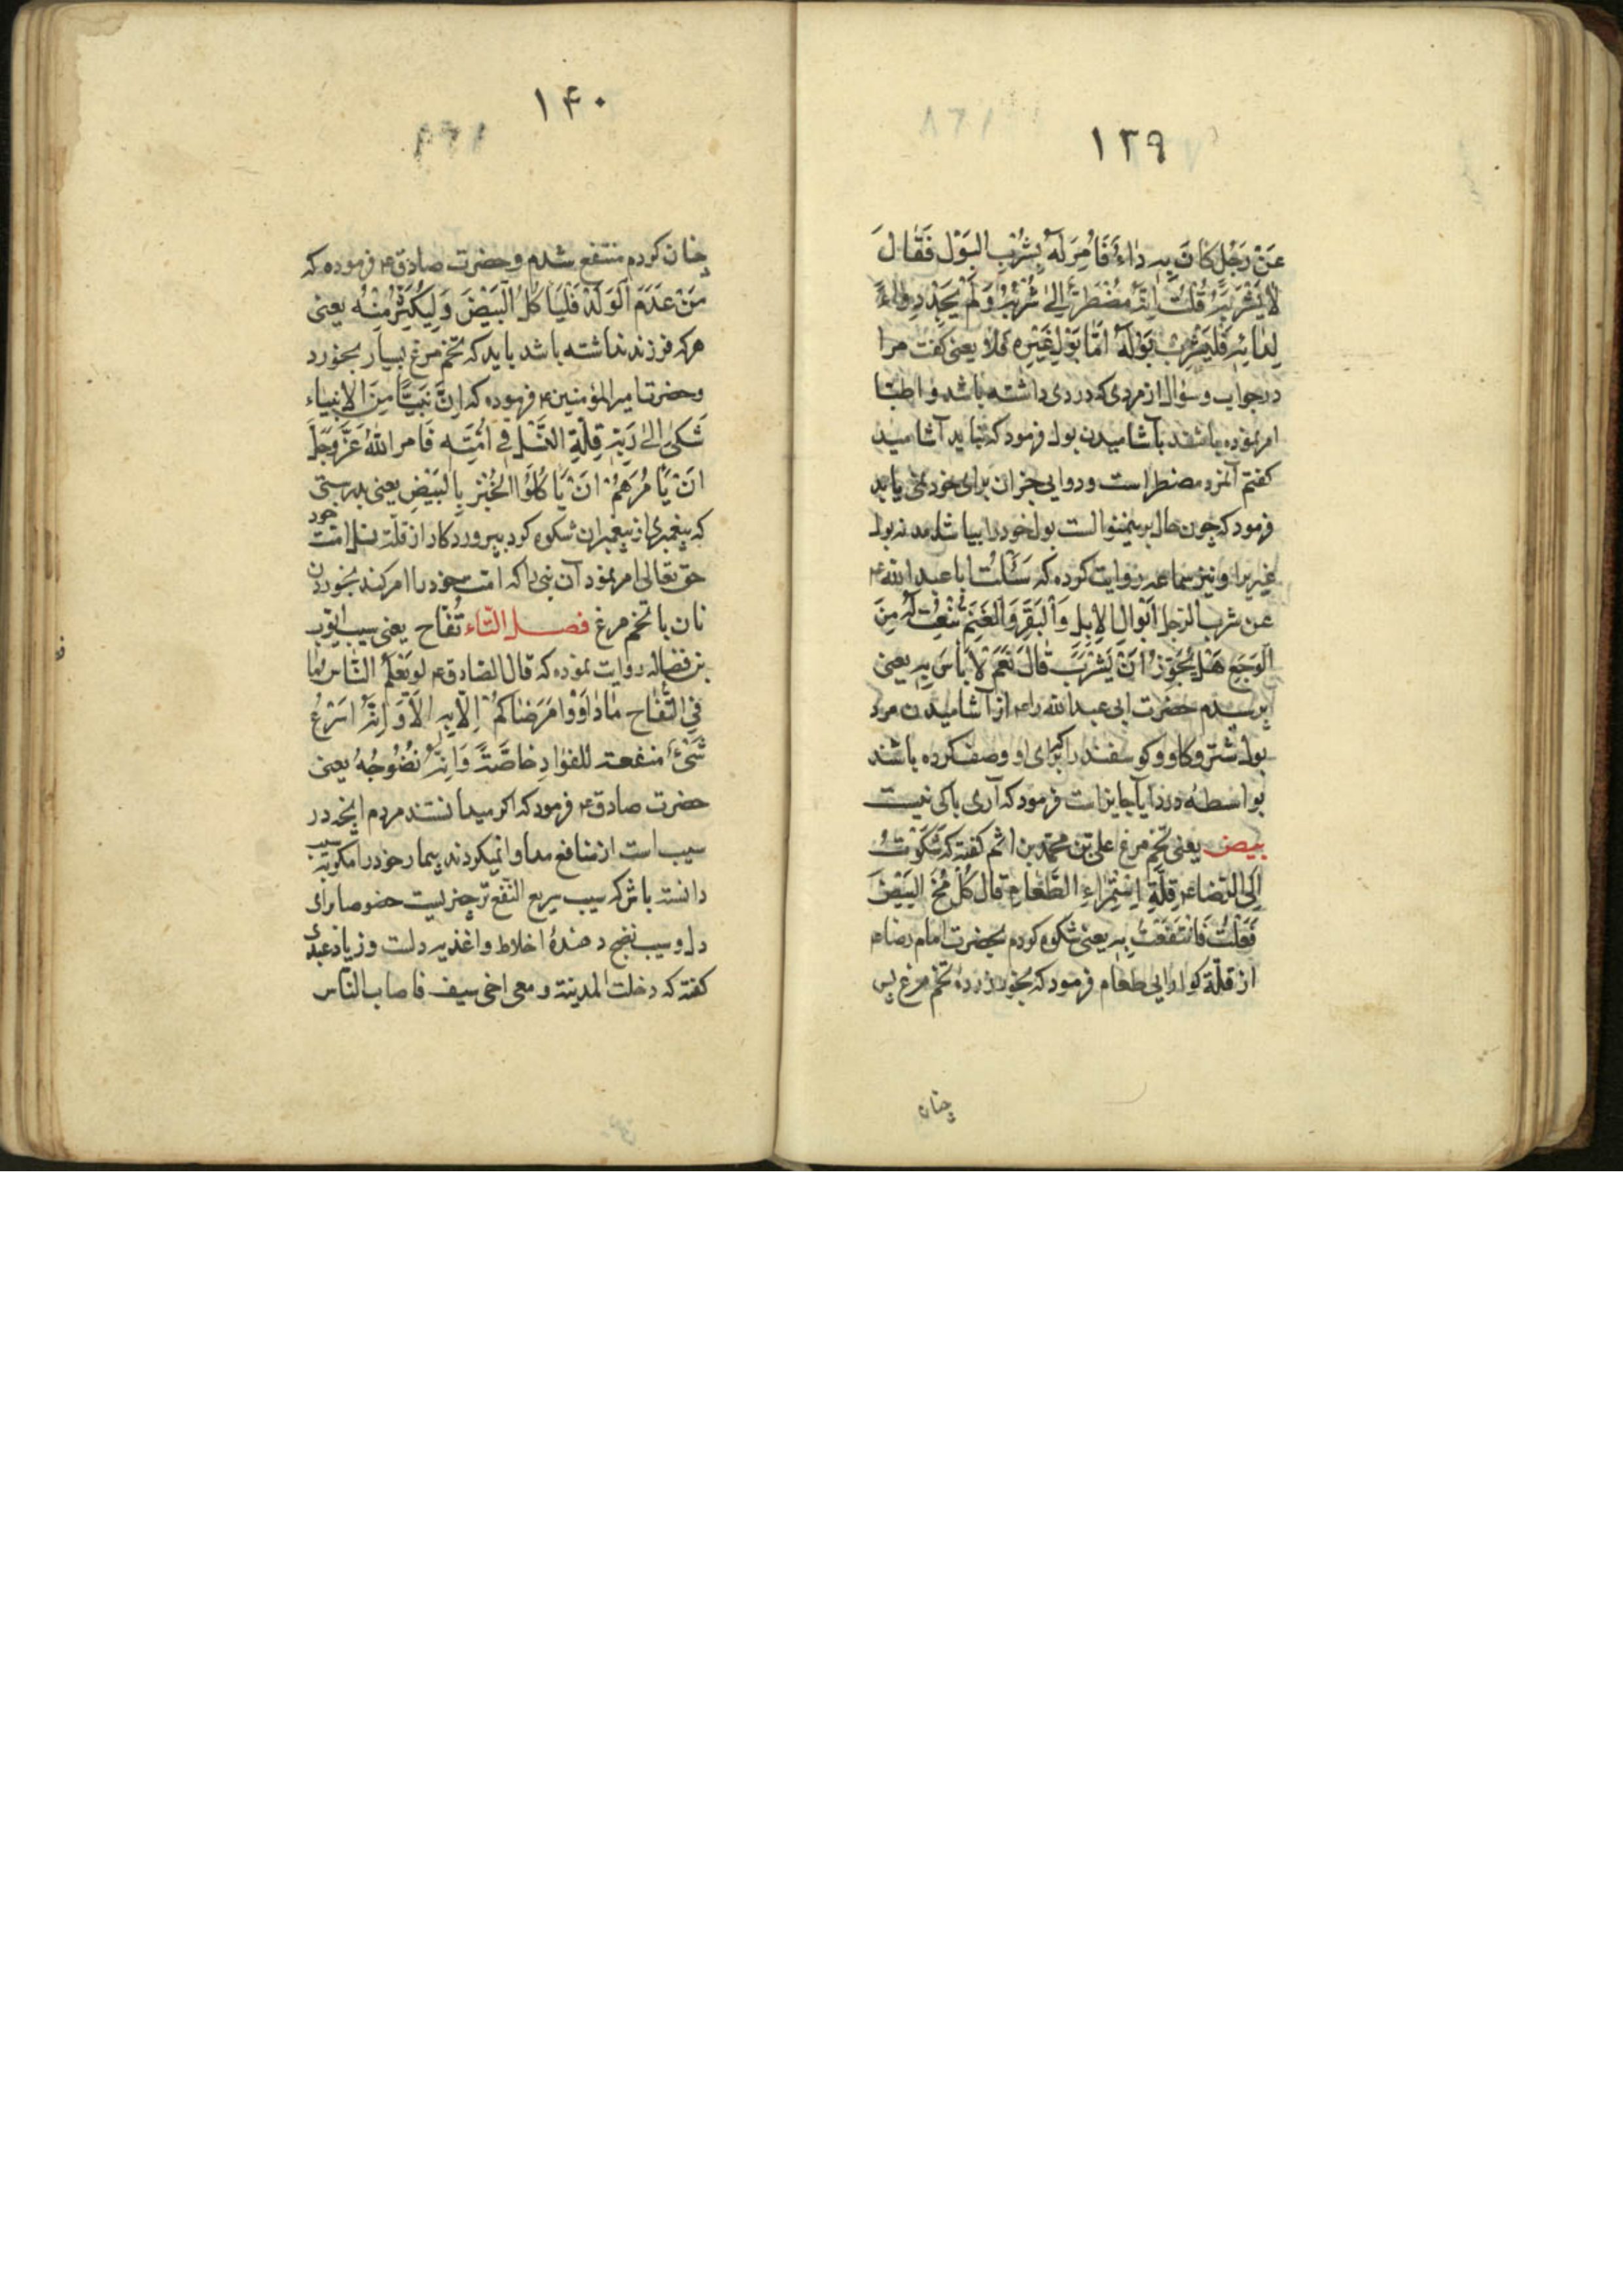 ۱۳۹
عَنْ رَجُلٍ كانَ بِهِ دٰاءٌ فَاُمِرَ لَهُ بِشُرْبِ البَوْلِ فَقٰالَ
لا يَشْرَبُهُ قُلْتُ اِنَّهُ مُضْطَرٌّ اِلىٰ شُرْبِهِ وَلَمْ يَجِدْ دَوٰاءً
لِدٰائِهِ فَلْيَشْرِبْ بَوْلَهُ اَمّٰا بَوْلِ غَيْرِهِ فَلاٰ یعنی کفت مرا
در جواب و سؤال از مردی که دردی داشته باشد و اطبّا
امر نموده باشند بآشامیدن بول فرمود که نباید آشامید
کفتم آنمرد مضطر است و دوایی جز ان برای خود نمی یابد
فرمود که چون حال برینمنوالست بول خود را بیاشامد نه بول
غیر را و نیز سماعه روایت کرده که سَئَلْتُ ابا عبد الله ع
عن شرب الرجل اَبْوالِ الاِبِلِ وَالْبَقَرِ وَالْغَنَمِ تُنْعَتُ لَهُ مِنَ
الْوَجَعِ هَلْ يَجُوزُ اَنْ يَشْرَبَ قالَ نَعَمْ لاٰ بَأسَ بِهِ یعنی
پرسیدم حضرت ابی عبد الله را ع از آشامیدن مرد
بول شتر و کاو و کوسفند را که برای او وصف کرده باشند
بواسطه درد ایا جایز است فرمود که آری باکی نیست
بیض یعنی تخم مرغ علی بن محمّد بن اشم کفته که شَکَوْتُ
اِلَى الرّضا ع قِلَّةَ اِسْتِمْراءِ الطَّعٰامِ قال كُلْ مُخَّ البَيْضَ
فَفَعَلْتُ فَانْتَفَعْتُ بِهِ یعنی شکوه کردم بحضرت امام رضا ع
از قلّة کوارایی طعام فرمود که بخور زردهٔ تخم مرغ پس
چنان
۱۴۰
چنان کردم منتفع شدم و حضرت صادق ع فرموده که
مَنْ عَدَمَ الْوَلَدَ فَلْيَأكُلِ البَيْضَ وَلِيُكْثِرْ مِنْهُ یعنی
هر که فرزند نداشته باشد باید که تخم مرغ بسیار بخورد
و حضرت امیر المؤمنین ع فرموده که اِنَّ نَبِيًّا مِنَ الاَنبِیاء
شَكىٰ اِلىٰ رَبِّهِ قِلَّةِ النَّسْلِ فى اُمَّتِهِ فَامر اللهُ عَزَّوَجَلَّ
اَنْ يَأمُرَهُمْ اَنْ يَأكُلُوا الخُبْزَ بِالبَيْضِ یعنی بدرستی
که پیغمبری از پیغمبران شکوه کرد بپروردکار از قلّة نسل امّت خود
حق تعالی امر نمود آن نبی را که امّت خود را امر کند بخوردن
نان با تخم مرغ فصل التّاء تُفّاح یعنی سیب ایّوب
بن فضاله روایت نموده که قال الصّادق ع لو يَعْلَمُ النّاس مٰا
فِي التُّفّاحِ مٰا دٰاوَوْا مَرْضٰاكُمْ اِلاّ بِهِ اَلاٰ وَاِنَّهُ اَسْرَعُ
شَیْءٍ مَنفعة للفؤادِ خاصَّةً وَاِنَّهُ نُضُوجُهُ یعنی
حضرت صادق ع فرمود که اکر میدانستند مردم انچه در
سیب است از منافع مداوا نمیکردند بیمار خود را مکر به سیب
دانسته باش که سیب سریع النّفع تر چیزیست خصوصا برای
دل و سیب نضج دهندهٔ اخلاط و اغذیه دلست و زیاد عبدی
کفته که دخلت المدینة و معی اخی سیف فاصاب النّاس